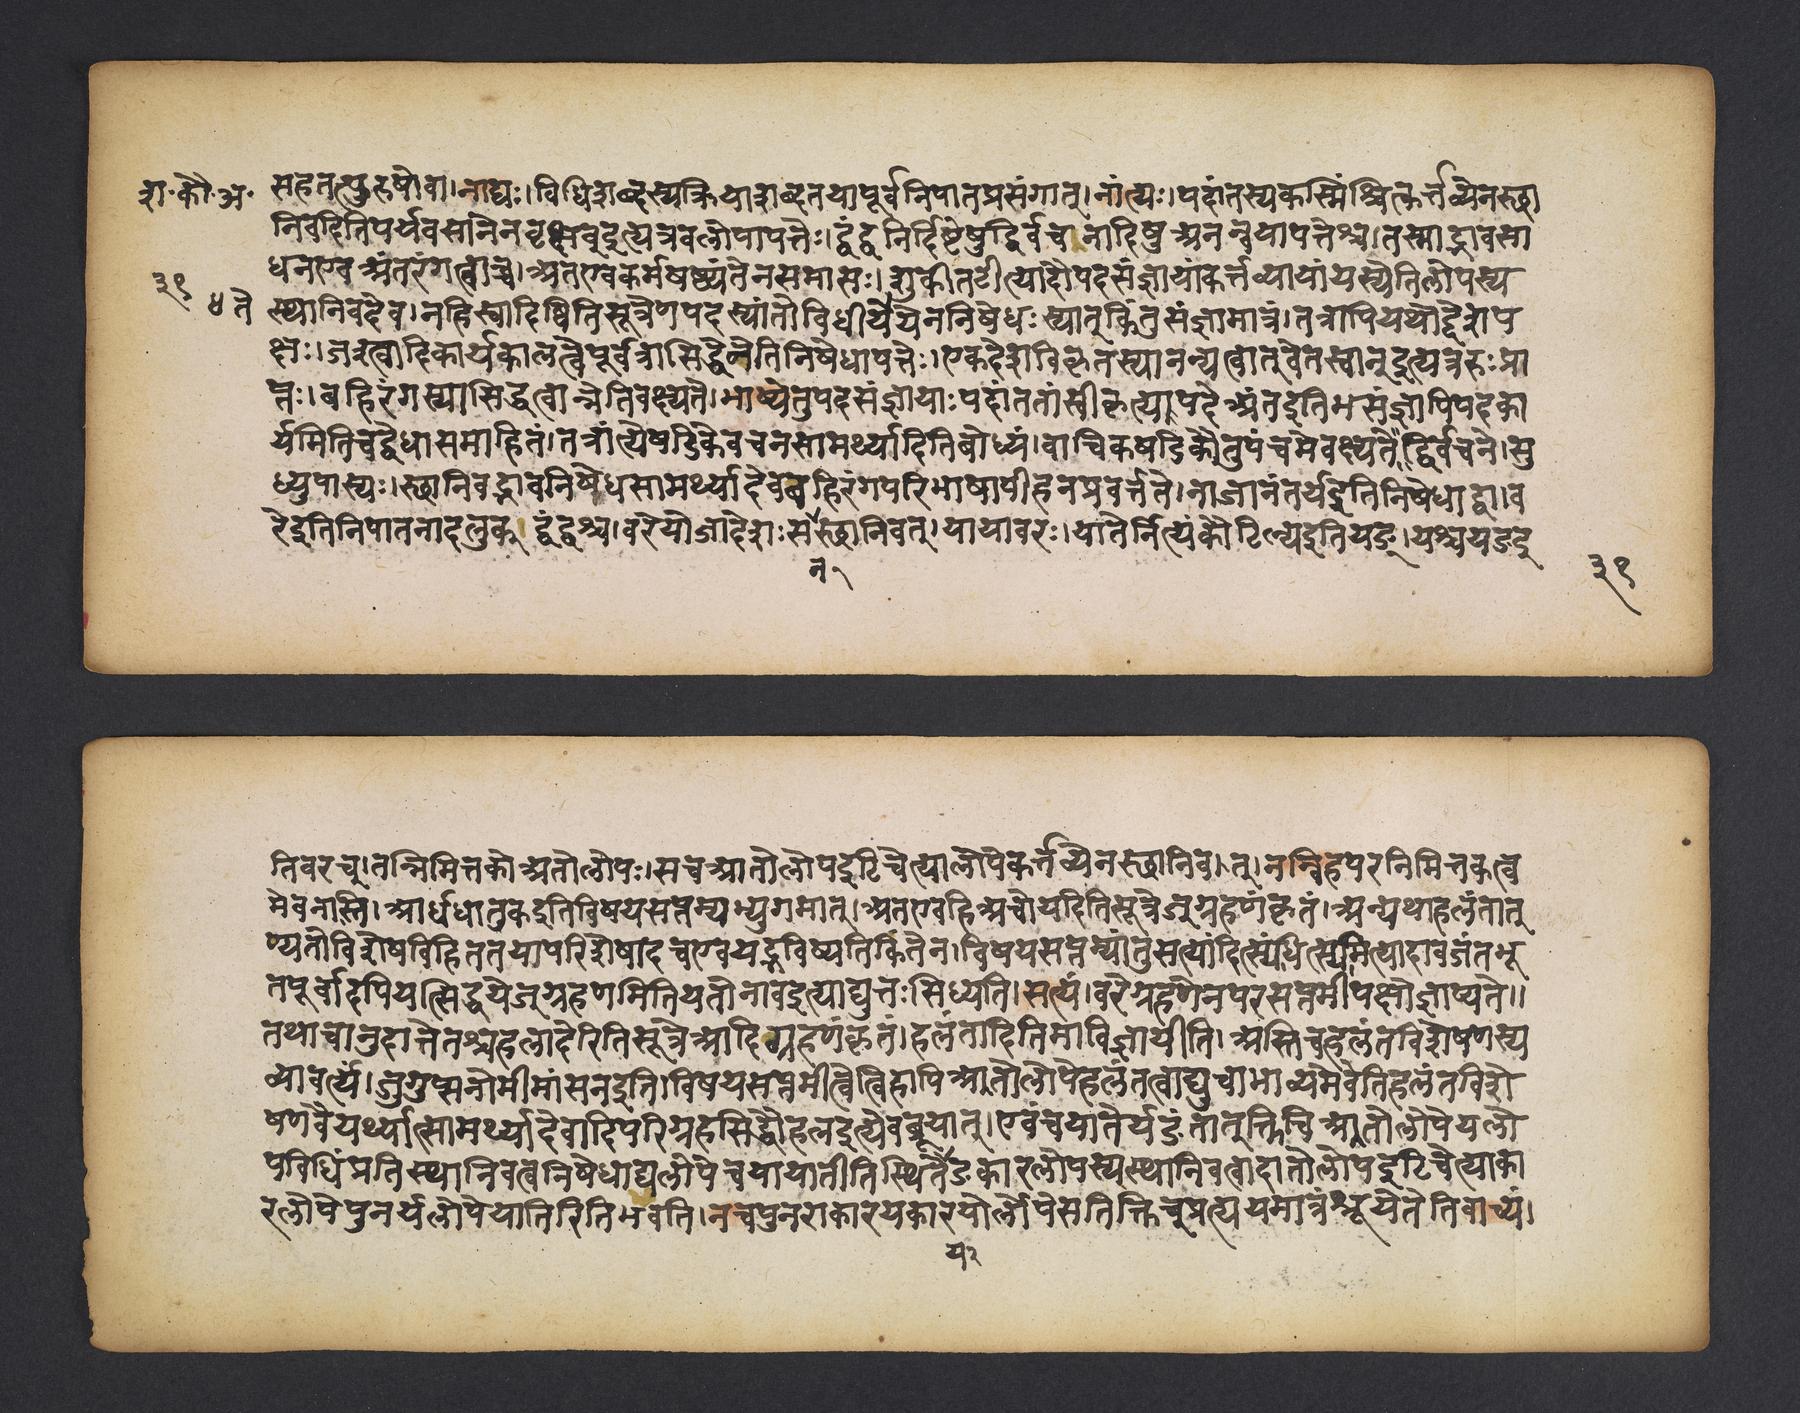 श·कौ·अ·
सहतत्पुरुषोवा।नाद्यः।विधिशब्दस्यक्रियाशब्दतयापूर्वनिपातप्रसंगात्।नांत्यः।पदांतस्यकस्मिंश्चित्कर्त्तव्येनस्था
निवदितिपर्यवसानेनवृक्षवुदुत्येत्रवलोपापत्तेः।द्वंद्वनिर्दिष्टेषुद्विर्वचानादिषुअनन्वयापत्तेश्च।तस्माद्भावसा
३१
धनएवअंतरंगत्वाच्च।अतएवकर्मषष्ठ्यंतेनसमासः।शुक्लीतटीत्यादौपदसंज्ञायांकर्त्तव्यायांयस्येतिलोपस्य
४ ते
स्थानिवदेव।नहिस्वादिष्वितिसूत्रेणपदस्यांतोविधीयेयेननिषेधःस्यात्किंतुसंज्ञामात्रं।तत्रापियथोद्देशप
क्षः।जश्त्वादिकार्यकालत्वेपूर्वत्रासिद्धेनेतिनिषेधापत्तेः।एकदेशविकृतस्यानन्यत्वात्वेतस्वानुदुत्येत्ररुःप्रा
प्तः।बहिरंगस्यासिद्धत्वान्नेतिवक्ष्यते।भाष्येतुपदसंज्ञायाःपदांततांस्वीकृत्यापदेअंतइतिभसंज्ञापिपदका
र्यमितिचद्वेधासमाहितं।तत्रांत्येषडिकेवचनसामर्थ्यादितिबोध्यं।वाचिकषडिकौतुपंचमेवक्ष्यते॥द्विर्वचने।सु
ध्युपास्यः।स्थानिवद्भावनिषेधसामर्थ्यादेवबहिरंगपरिभाषापीहनप्रवर्त्तते।नाजानंतर्यइतिनिषेधाद्वा।व
रेइतिनिपातनादलुक् द्वंद्वश्च।वरेयोजादेशःसस्थानिवत्।यायावरः।यातेर्नित्यंकौटिल्यइतियङ्।यश्चयङइ
न१
३१
तिवरच्।तन्निमित्तकोअतोलोपः।सचआतोलोपइटिचेत्यालोपेकर्त्तव्येनस्थानिवत्।नन्विहपरनिमित्तकत्व
मेवनास्ति।आर्धधातुकइतिविषयसप्तम्यभ्युगमात्।अतएवहिअचोयदितिसूत्रेज्ग्रहणंकृतं।अन्यथाहलंतात्
ण्यतोविशेषविहिततयापरिशेषादचएवयद्भविष्यतिकिंतेन।विषयसप्तम्यांतुसत्यांदित्स्यंधित्स्यमित्यादावजंतभू
तपूर्वादपियत्सिद्धयेज्ग्रहणमितियतोनावइत्याद्युत्तःसिध्यति।सत्यं।वरेग्रहणेनपरसप्तमीपक्षोज्ञाप्यते॥
तथाचानुदात्तेतश्चहलादेरितिसूत्रेआदिग्रहणंकृतं।हलंतादितिमाविज्ञायीति।अस्तिचहलंतविशेषणस्य
व्यावर्त्यं।जुगुप्सनोमीमांसनइति।विषयसप्तमीत्वेत्विहापिआतोलोपेहलंतत्वाद्युचाभाव्यमेवेतिहलंतविशे
षणवैयर्थ्यात्सामर्थ्यादेवादिपरिग्रहसिद्धौहलइत्येवब्रूयात्।एवंचयातेर्यङंतात्क्तिचिआतोलोपेयलो
पविधिंप्रतिस्थानिवत्वनिषेधाद्यलोपेचयायातीतिस्थितेङकारलोपस्यस्थानिवत्वादातोलोपइटिचेत्याका
रलोपेपुनर्यलोपेयातिरितिभवति।नचपुनराकारयकारयोर्लोपेसतिक्तिच्प्रत्ययमात्रंश्रूयेतेतिवाच्यं।
य२